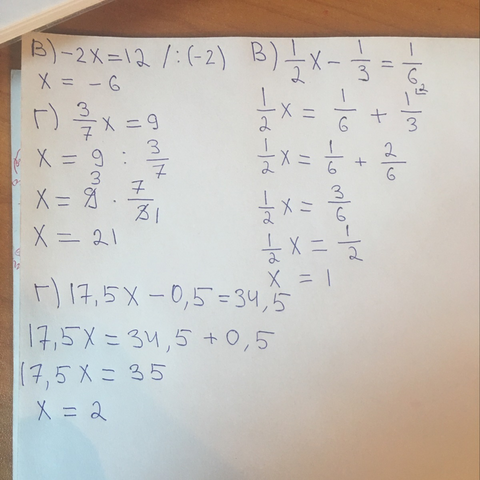 В) -2x = 12 /:(-2)
x = -6
Г) 3/7 x = 9
x = 9 : 3/7
x = 9 3 · 7/3 1
x = 21
В) 1/2 x - 1/3 = 1/6
1/2 x = 1/6 + 1/3 2
1/2 x = 1/6 + 2/6
1/2 x = 3/6
1/2 x = 1/2
x = 1
Г) 17,5x - 0,5 = 34,5
17,5x = 34,5 + 0,5
17,5x = 35
x = 2